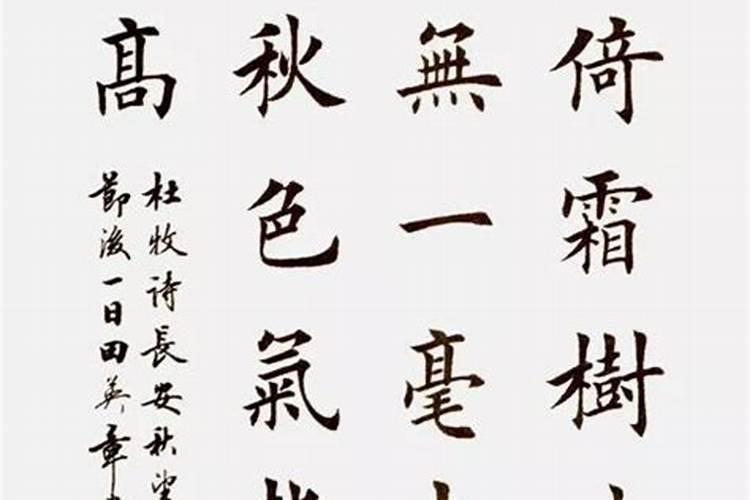 倚霜樹
無一毫
秋色氣
高
杜牧诗長安秋望
節後一日田英章